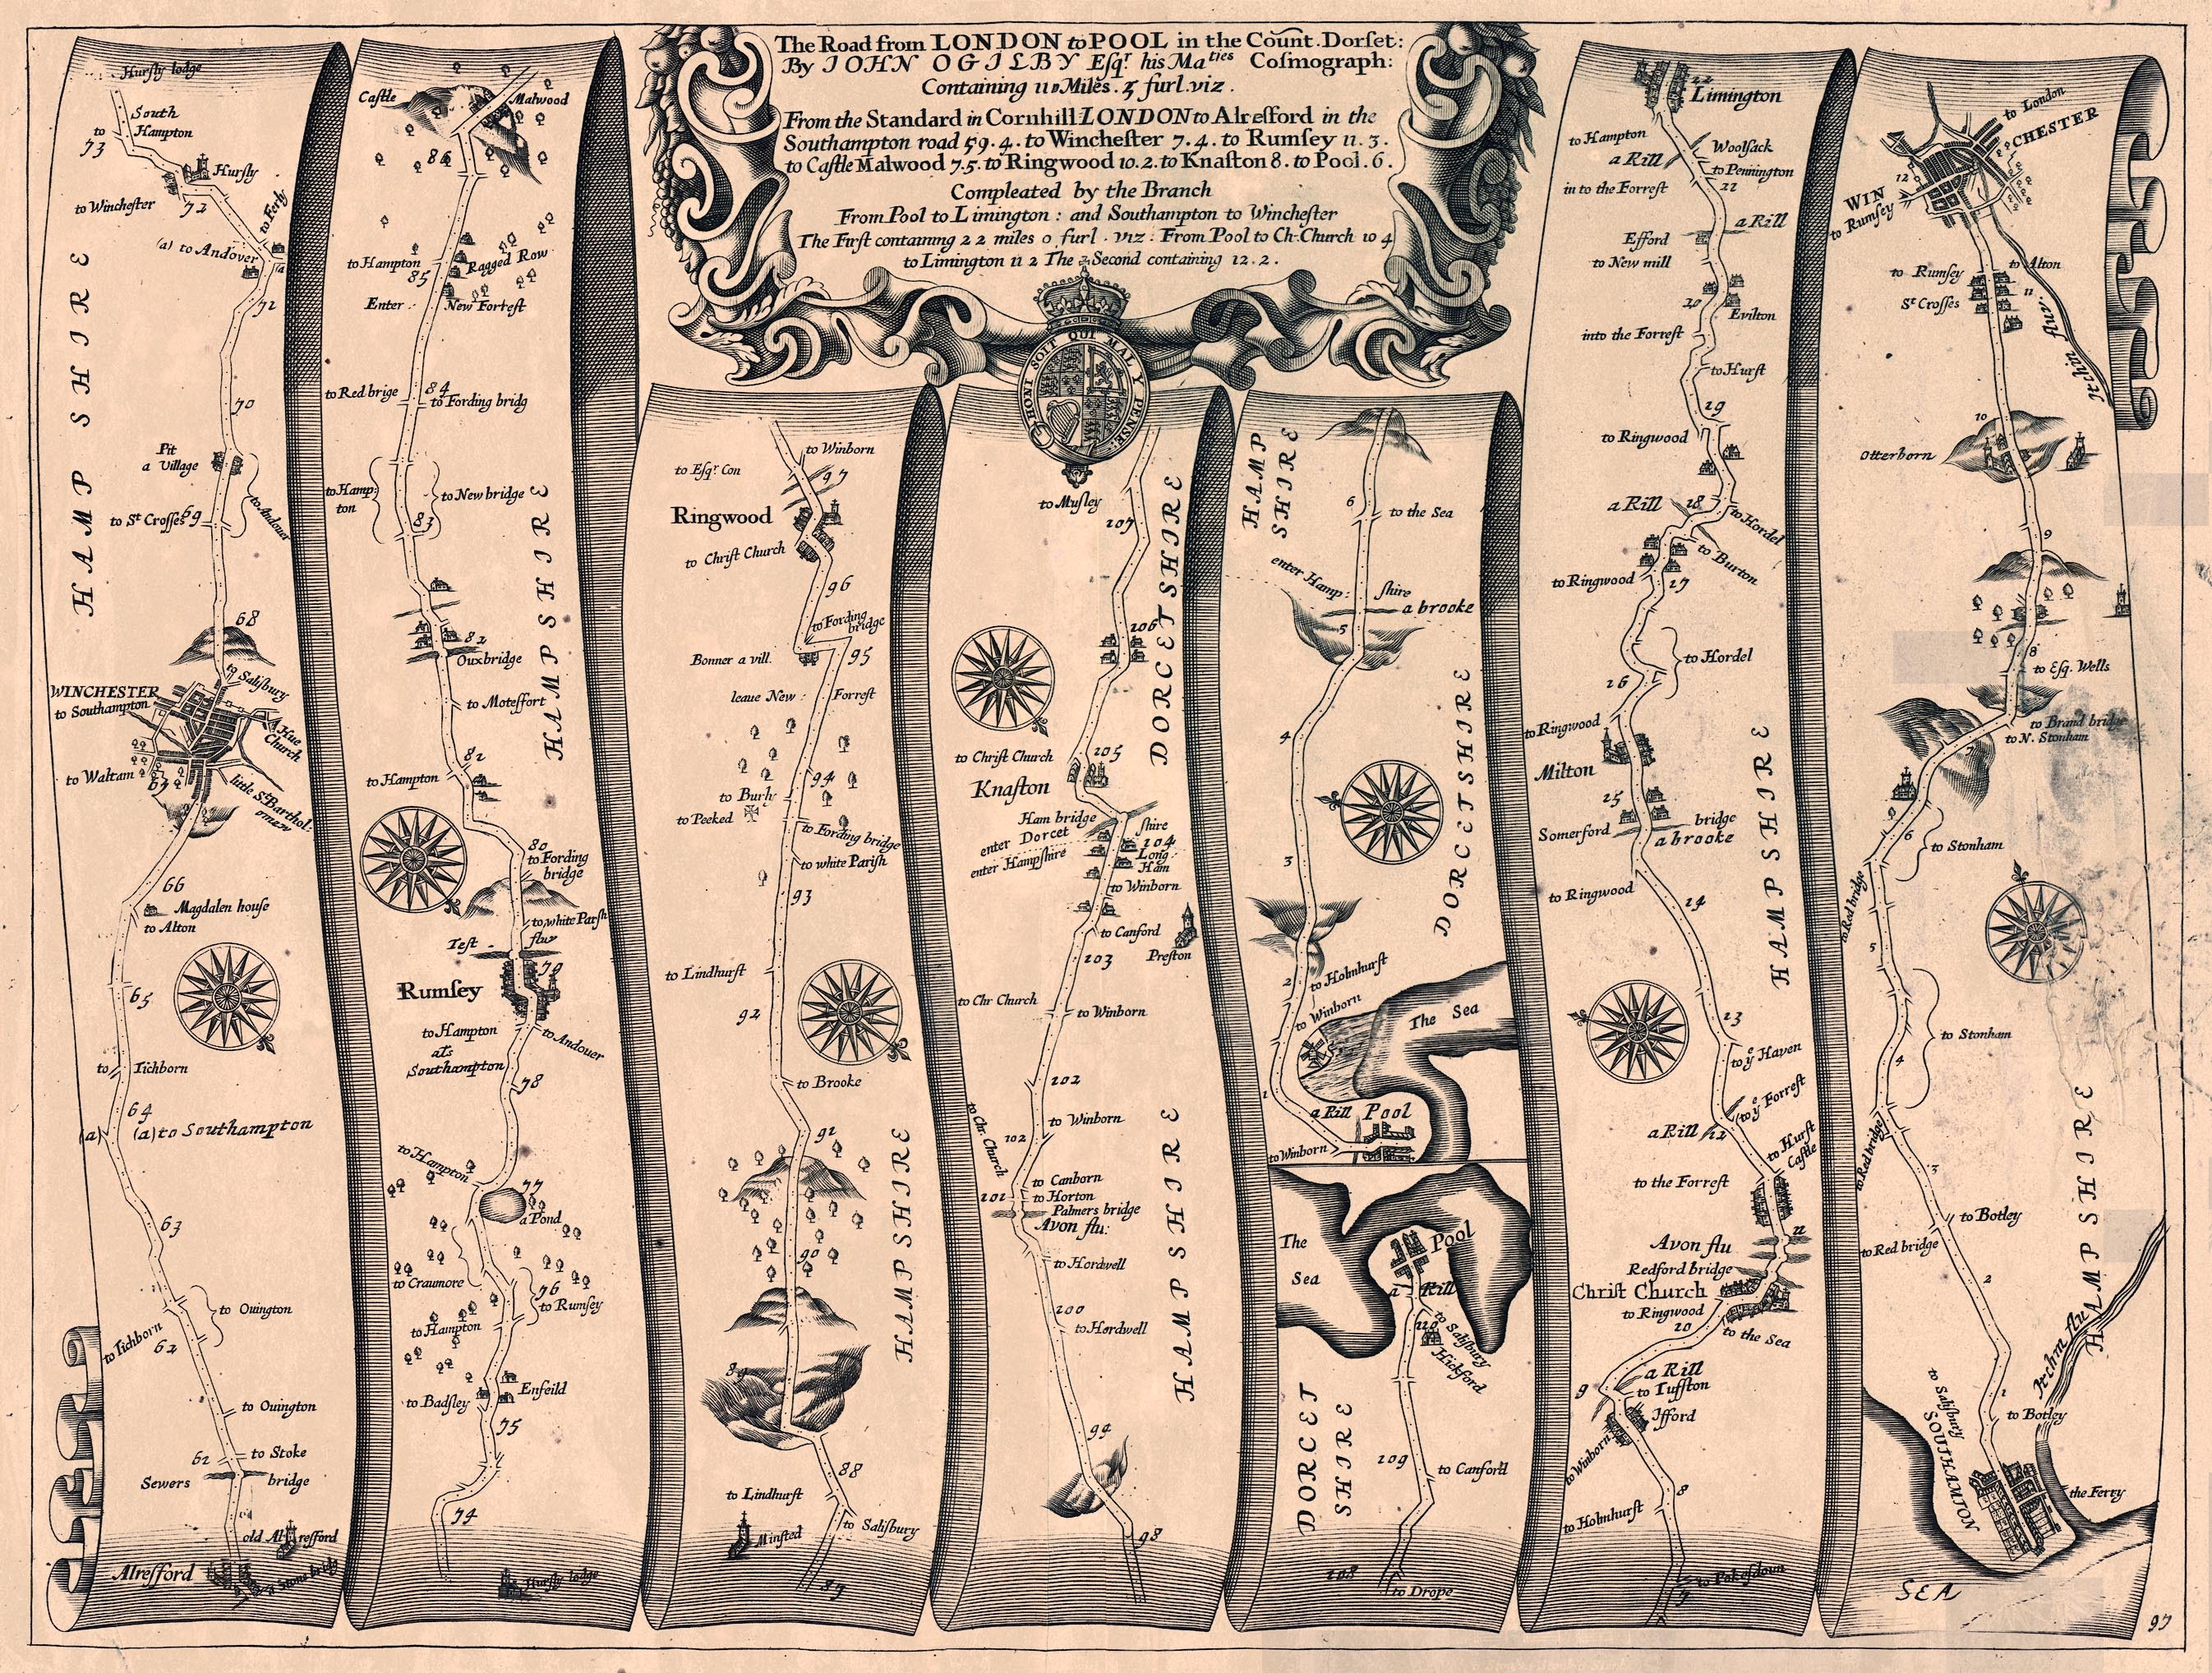 The Road from LONDON to POOL in the Count. Dorſet:
By JOHN OGILBY Eſqr. his Maties Coſmograph:
Containing 110 Miles. 5 furl. viz.
From the Standard in Cornhill LONDON to Alresford in the
Southampton road 59.4. to Wincheſter 7.4. to Rumſey 11.3.
to Caſtle Malwood 7.5. to Ringwood 10.2. to Knaſton 8. to Pool. 6.
Compleated by the Branch
From Pool to Limington: and Southampton to Wincheſter
The Firſt containing 22 miles 0 furl. viz: From Pool to Ch. Church 10 4
to Limington 11 2 The Second containing 12.2.
HONI SOIT QUI MAL Y PENSE
Hurſly lodge
South
to Hampton
73
Hurſly
to Wincheſter
72
to Ferly
(a) to Andover
a
HAMPSHIRE
70
Pit
a Village
to St Croſſes
69
to Andouer
68
WINCHESTER
to Salisbury
to Southampton
Hue
Church
to Waltam
67
little St Barthol:
omew
66
Magdalen houſe
to Alton
65
to Tichborn
64
(a)
(a) to Southampton
63
to Ouington
to Tichborn
62
to Ouington
61
to Stoke
Sewers bridge
old Alresford
Alresford
a Stone bridg
Caſtle Malwood
86
to Hampton
85
Ragged Row
Enter New Forreſt
84
to Red brige
to Fording bridg
to Hamp:
ton
to New bridge
83
HAMPSHIRE
82
Ouxbridge
to Moteffort
81
to Hampton
80
to Fording
bridge
to white Parſh
Teſt flu
79
Rumſey
to Hampton
als
Southampton
to Andouer
78
to Hampton
77
a Pond
to Craumore
76
to Rumſey
to Hampton
Enfeild
to Badſley
75
74
Hurſly lodge
to Winborn
to Eſqr Con
97
Ringwood
to Chriſt Church
96
to Fording
bridge
Bonner a vill.
95
leaue New Forreſt
94
to Burly
to Peeked
to Fording bridge
to white Pariſh
93
to Lindhurſt
92
to Brooke
91
90
HAMPSHIRE
89
88
to Lindhurſt
to Salisbury
Minſted
87
to Muſley
107
DORCETSHIRE
106
105
to Chriſt Church
Knaſton
Ham bridge
enter Dorcet shire
enter Hampſhire
104
Long
Ham
to Winborn
to Canford
Preſton
103
to Chr Church
to Winborn
102
to Winborn
to Chr. Church
102
to Canborn
101
to Horton
Palmers bridge
Avon flu:
to Hordwell
HAMPSHIRE
100
to Hordwell
99
98
HAMP
SHIRE
6
to the Sea
enter Hamp: ſhire
a brooke
5
4
DORCETSHIRE
3
2
to Holmhurſt
to Winborn
The Sea
1
a Rill
Pool
to Winborn
The
Sea
Pool
a Rill
110
to Salisbury
Hickford
DORCET
SHIRE
109
to Canford
108
to Drope
22
Limington
to Hampton
Woolſack
a Rill
to Pennington
in to the Forreſt
21
a Rill
Efford
to New mill
20
Evilton
into the Forreſt
to Hurſt
19
to Ringwood
a Rill
18
to Hordel
to Burton
to Ringwood
17
to Hordel
16
to Ringwood
Milton
15
Somerford
bridge
a brooke
HAMPSHIRE
to Ringwood
14
13
to ye Haven
to ye Forreſt
a Rill
12
to Hurſt
Caſtle
to the Forreſt
11
Avon flu
Redford bridge
Chriſt Church
to Ringwood
10
to the Sea
a Rill
9
to Tuffton
Ifford
to Winborn
8
to Holmhurſt
7
to Pokesdown
to London
WIN CHESTER
12
to Rumſey
to Alton
to Rumſey
11
St Croſſes
Itchin fluv.
10
Otterborn
9
8
to Eſq. Wells
to Brand bridge
to N. Stonham
7
6
to Stonham
to Red bridge
5
to Stonham
4
to Red bridge
3
HAMPSHIRE
to Botley
to Red bridge
2
Itchin flu
1
to Botley
to Salisbury
SOUTHAMTON
the Ferry
SEA
97